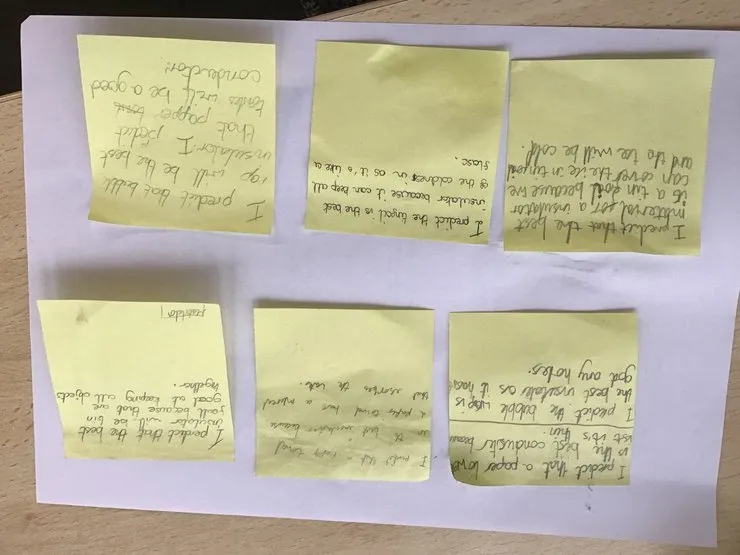 I pedict that a paper towel
is the best conductor
it's thin.
I predict the bubble wrap is
the best insulate as it hasnt
got any holes.
I predict that a paper towel
is the best insulator because
a paper towel has a material
that
I perdict that the best
insulator will be tin
foill because that are
good at keeping all objects
I predict that the best
matterial for a insulator
is a tin foil because we
can cover the ice in tin foil
and the ice will be cold.
I predict the tin foil is the best
insulator because it can keep all
of the coldnes in as it is like a
flasc.
I predict that bubble
rap will be the best
insulator. I pedict
that papper
towles will be a good
conductor.